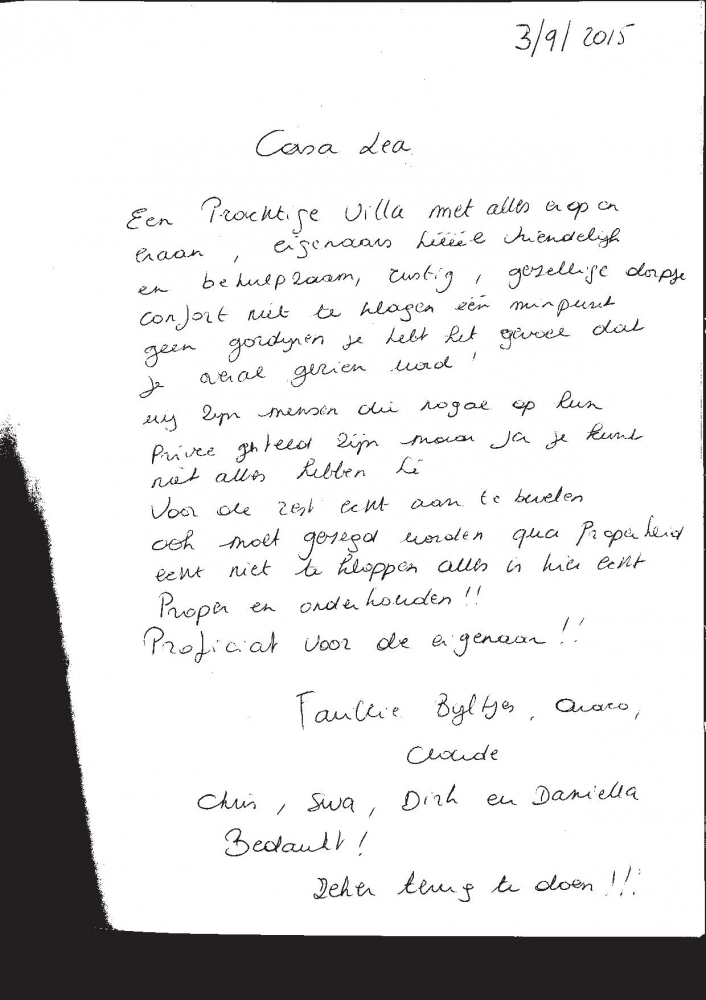 3/9/2015
Casa Lea
Een Prachtige Villa met alles erop en
eraan, eigenaars hééééél vriendelijk
en behulpzaam, rustig, gezellige dorpje
confort niet te klagen één minpunt
geen gordijnen je hebt het gevoel dat
je overal gezien word!
wij zijn mensen die nogal op hun
Privee gesteld zijn maar ja je kunt
niet alles hebben hé
Voor de rest echt aan te bevelen
ook moet gezegd worden qua Properheid
echt niet te kloppen alles is hier echt
Proper en onderhouden!!
Proficiat voor de eigenaar!!
Familie Byltjes,
Claude
Chris, Swa, Dirk en Daniella
Bedankt!
Zeker terug te doen!!!